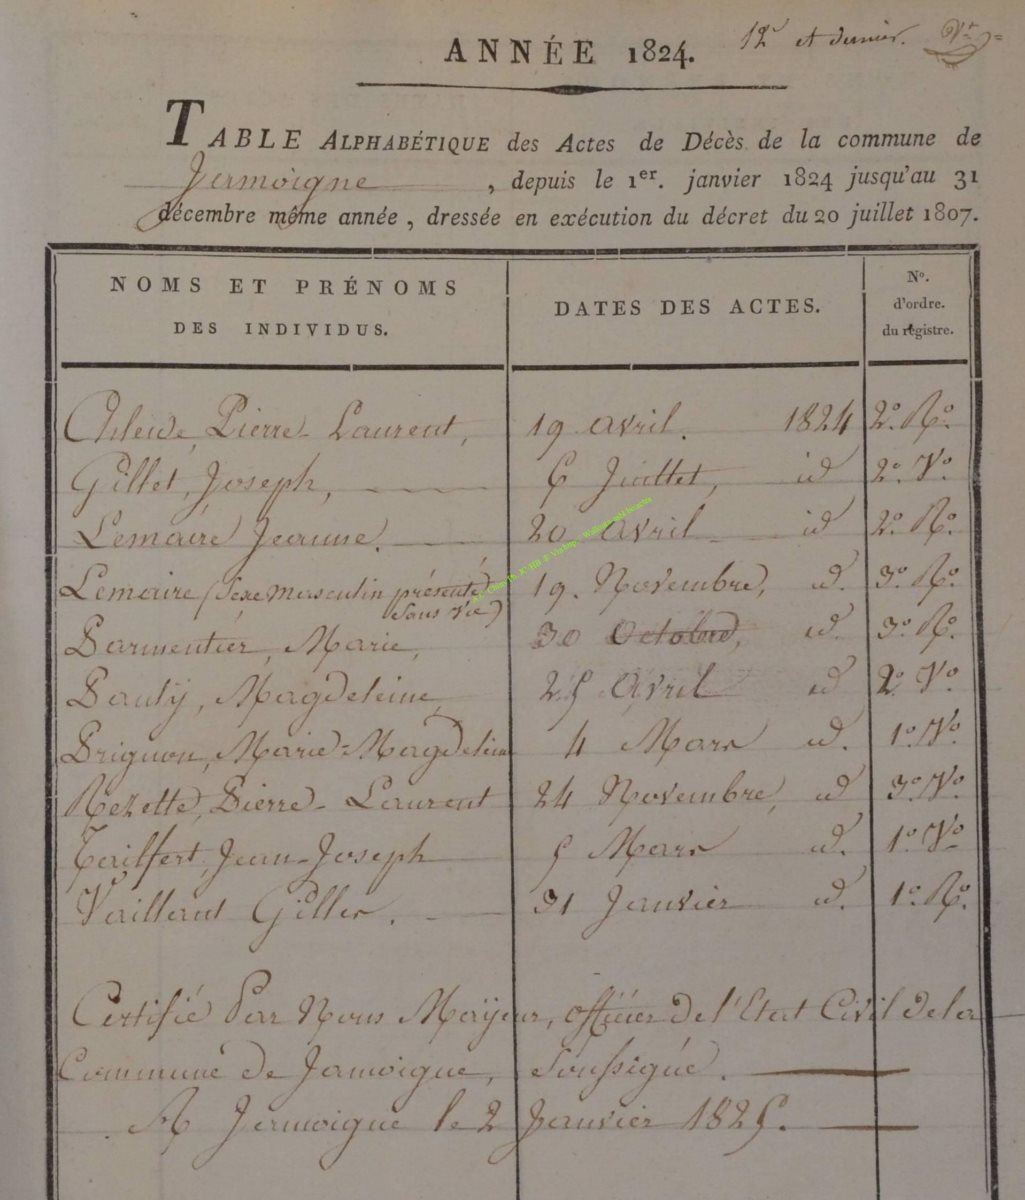 ANNÉE 1824. 12e et dernier. Vt =
TABLE ALPHABÉTIQUE des Actes de Décès de la commune de
Jamoigne, depuis le 1er. janvier 1824 jusqu'au 31
décembre même année, dressée en exécution du décret du 20 juillet 1807.
NOMS ET PRÉNOMS
DES INDIVIDUS.
DATES DES ACTES.
No.
d'ordre.
du registre.
Pierre-Laurent, 19 avril. 1824 2o. Ro.
Gillet, Joseph, 6 Juillet, id 2o. Vo.
Lemaire Jeanne. 20 avril id 2o. Ro.
Lemaire (Sexe masculin présenté 19. Novembre, id. 3o. Ro.
sans vie)
Parmentier, Marie, 30 Octobre, id. 3o. Ro.
Pauly, Magdeleine, 25 Avril id 2o. Vo.
Prignon, Marie-Magdeleine 4 Mars id. 1o. Vo.
Rezette, Pierre-Laurent 24 Novembre, id 3o. Vo.
Tailfert, Jean-Joseph 5 Mars id. 1o. Vo.
Vaillant Gilles. 31 Janvier id. 1o. Ro.
Certifié Par Nous Mayeur, officier de l'Etat Civil de la
Commune de Jamoigne, soussigné.
A Jamoigne le 2 Janvier 1825.